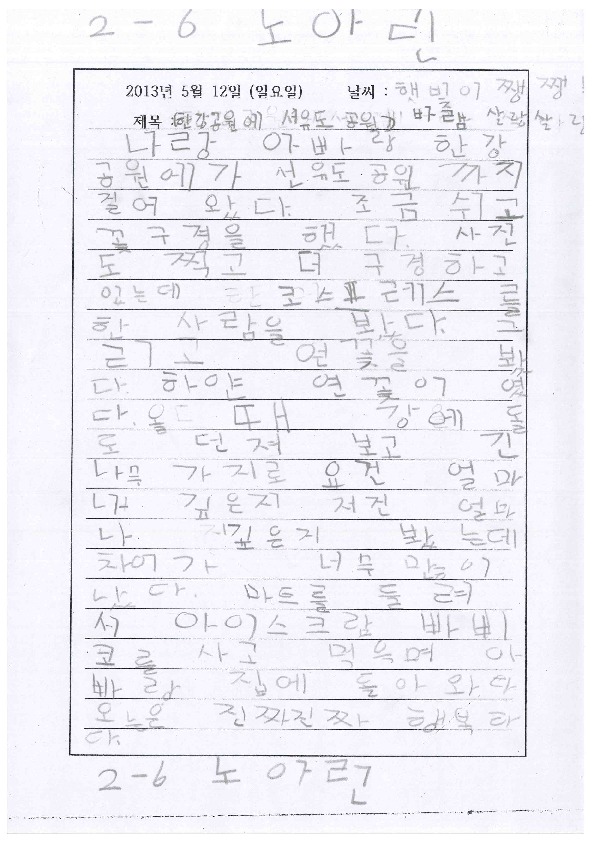 2-6 노아린
2013년 5월 12일 (일요일) 날씨 : 햇빛이 쨍쨍!
제목 : 한강공원에 선유도 공원가 바람 살랑살랑
나랑 아빠랑 한강
공원에가 선유도 공원 까지
걸어 왔다. 조금 쉬고
꽃구경을 했다. 사진
도 찍고 더 구경하고
있는데 코스프레스를
한 사람을 봤다. 그
리고 연꽃을 봤
다 하얀 연꽃이 였
다. 올 때 강에 돌
도 던져 보고 긴
나무 가지로 요건 얼마
나 깊은지 저건 얼마
나 깊은지 봤는데
차이가 너무 많이
났다. 마트를 들려
서 아이스크림 빠삐
코를 사고 먹으며 아
빠랑 집에 돌아 와.다
오늘은 진짜진짜 행복하
다.
2-6 노아린